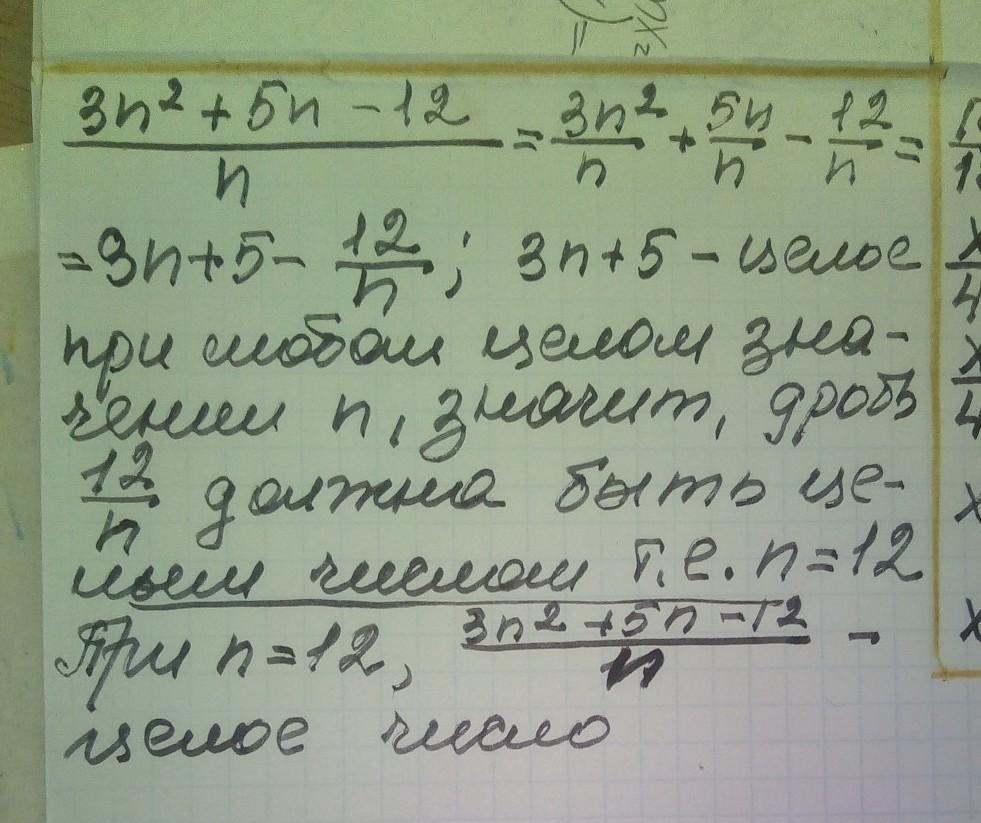 (3n² + 5n - 12)/n = 3n²/n + 5n/n - 12/n =
= 3n + 5 - 12/n; 3n + 5 - целое
при любом целом зна-
чении n, значит, дробь
12/n должна быть це-
лым числом т.е. n = 12
При n = 12, (3n² + 5n - 12)/n -
целое число